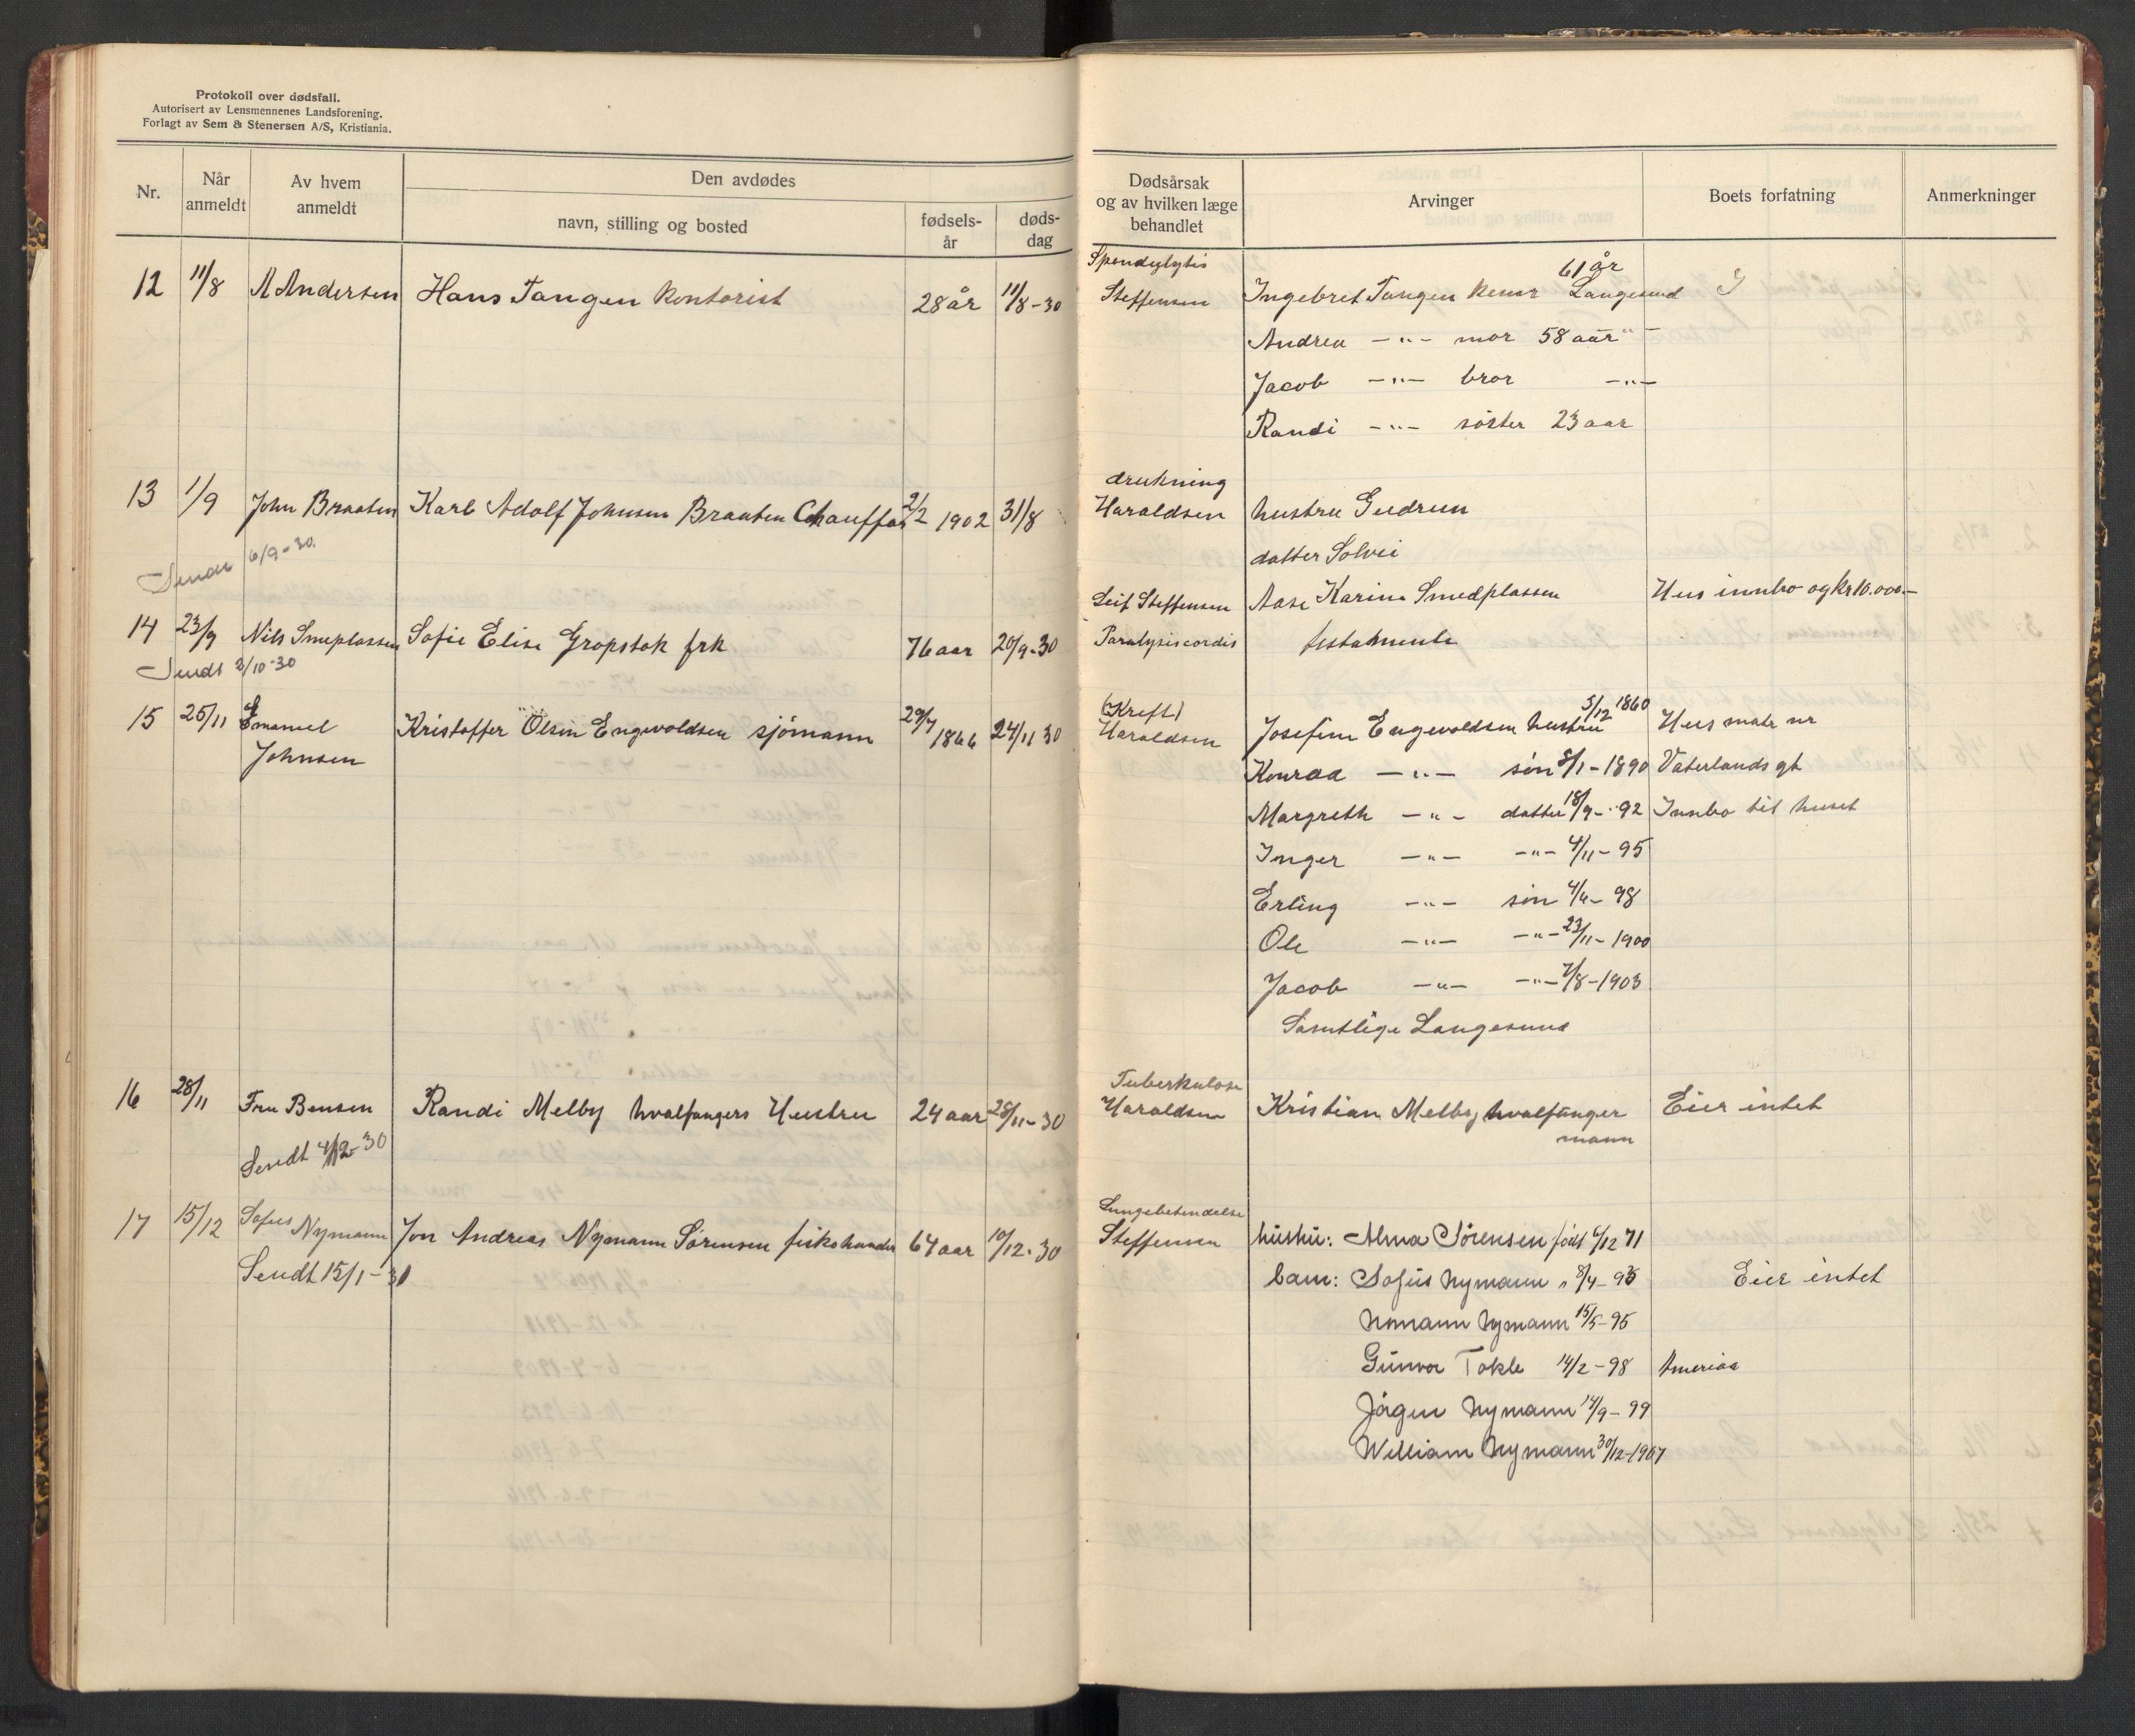 Protokoll over dødsfall.
Autorisert av Lensmennenes Landsforening.
Forlagt av Sem & Stenersen A/S, Kristiania.
Nr.
Når anmeldt
Av hvem anmeldt
Den avdødes
navn, stilling og bosted
fødsels-år
døds-dag
Dødsårsak og av hvilken læge behandlet
Arvinger
Boets forfatning
Anmerkninger
Spondylytis 61 år
12 11/8 A Andersen Hans Tangen Kontorist 28 år 11/8-30 Steffensen Ingebret Tangen Langesund
Andrea -"- mor 58 aar " -
Jacob -"- bror -"-
Randi -"- söster 23 aar
drukning
13 1/9 John Braaten Karl Adolf Johnsen Braaten Chauffør 2/2 1902 31/8 Haraldsen hustru Gudrun
Sendt 6/9-30. datter Solvei
Leif Steffensen Aase Karine Smedplassen Hus innbo og kr 10.000.-
14 23/9 Nils Smeplassen Sofie Elise Gropstok frk 76 aar 20/9-30 Paralysis cordis testamente
Sendt 2/10-30
(Kreft) 5/12 1860
15 25/11 Emanuel Kristoffer Olsen Engvoldsen sjömann 29/7 1866 24/11 30 Haraldsen Josefine Engevoldsen hustru Hus matr nr
Johnsen Konrad -"- sön 8/1-1890 Vaterlands gt
Margreth -"- datter 18/9-92 Innbo til huset
Inger -"- -"- 4/11-95
Erling -"- sön 4/4-98
Ole -"- -"- 23/11-1900
Jacob -"- -"- 7/8-1903
Samtlige Langesund
Tuberkulose
16 28/11 Fru Bensen Randi Melby hvalfangers Hustru 24 aar 28/11-30 Haraldsen Kristian Melby hvalfanger Eier intet
Sendt 4/12-30 mann
Lungebetendelse
17 15/12 Sofus Nymann Jon Andreas Nymann Sörensen fiskehandler 64 aar 10/12-30 Steffensen hustru: Alma Sörensen födt 6/12 71
Sendt 15/1-31 barn: Sofus Nymann " 8/4-93 Eier intet
Normann Nymann 15/5-95
Gunvor Tokle 14/2-98 America
Jörgen Nymann 14/9-99
William Nymann 30/12-1907